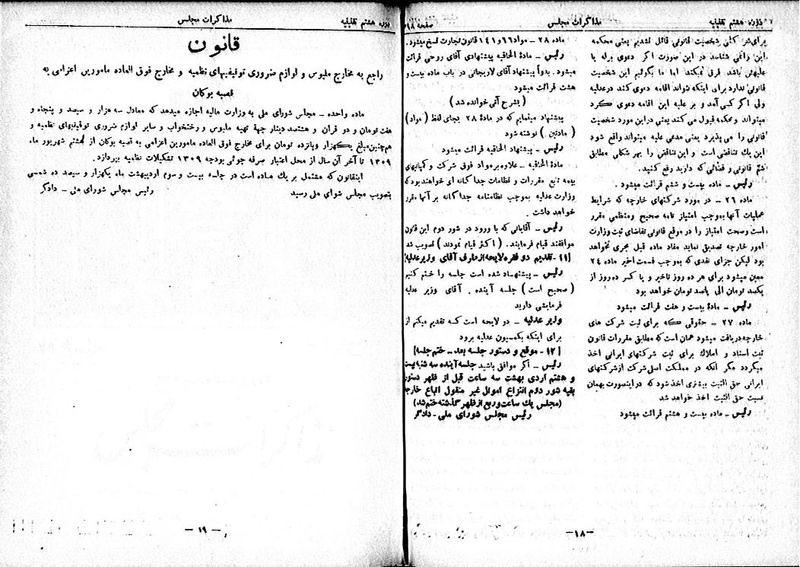 دوره هشتم تقنینیه
مذاکرات مجلس
صفحه ۱۸
برای شرکتی شخصیت قانونی قائل نشدیم یعنی محکمه
این را نمی شناسد در این صورت اگر دعوی برله یا
علیهش باشد فرق نمیکند اما ما بگوئیم این شخصیت
قانونی ندارد برای اینکه نتواند اقامه دعوی کند در عدلیه
ولی اگر کسی آمد و بر علیه این اقامه دعوی کرد
میتواند و محکمه قبول می کند یعنی در این مورد شخصیت
قانونی را می پذیرد یعنی مدعی علیه میتواند واقع شود
این یک تناقضی است و این تناقض را بهر شکلی مطابق
قانونی و قضائی که دارید رفع کنید.
رئیس – ماده بیست و ششم قرائت میشود.
ماده ۲۶ – در مورد شرکتهای خارجه که شرایط
عملیات آنها بموجب امتیاز نامه صحیح و منظمی مقرر
است وصحت امتیاز را در موقع قانونی تقاضای ثبت وزارت
امور خارجه تصدیق نماید مفاد ماده قبل مجری نخواهد
بود لیکن جزای نقدی که بموجب قسمت اخیر ماده ۲۴
معین میشود برای هر ده روز تاخیر و یا کسر ده روز از
یکصد تومان الی پانصد تومان خواهد بود
رئیس – مادهٔ بیست و هفت قرائت میشود
ماده ۲۷ – حقوقی که برای ثبت شرکت های
خارجه دریافت میشود همان است که مطابق مقررات قانون
ثبت اسناد و املاک برای ثبت شرکتهای ایرانی اخذ
میگردد مگر آنکه در مملکت اصل شرکت از شرکتهای
ایرانی حق الثبت بیشتری اخذ شود که در اینصورت بهمان
نسبت حق الثبت اخذ خواهد شد
رئیس – ماده بیست و هشتم قرائت میشود
ماده ۲۸ – مواد ۱۶ و ۱۴۱ قانون تجارت نسخ میشود.
رئیس – مادهٔ الحاقیه پیشنهادی آقای روحی قرائت
میشود. بدواً پیشنهاد آقای لاریجانی در باب ماده بیست و
هشت قرائت میشود
(بشرح آتی خوانده شد)
پیشنهاد مینمایم که در مادهٔ ۲۸ بجای لفظ (مواد)
(مادتین) نوشته شود
رئیس – مادهٔ الحاقیه قرائت میشود.
مادهٔ الحاقیه – علاوه بر مواد فوق شرکت و کمپانیهای
بیمه تابع مقررات و نظامات جداگانه ای خواهند بود که
وزارت عدلیه بموجب نظامنامه جداگانه بر آنها مقرر
خواهد داشت.
رئیس – آقایانی که با ورود در شور دوم این قانون
موافقند قیام فرمایند. (اکثر قیام نمودند) تصویب شد
[۱۱– تقدیم دو فقره لایحه از طرف آقای وزیر عدلیه]
رئیس – پیشنهاد شده است جلسه را ختم کنیم
(صحیح است) جلسه آینده. آقای وزیر عدلیه
فرمایشی دارید
وزیر عدلیه – دو لایحه است که تقدیم میکنم از
برای اینکه بکمسیون عدلیه برود
[۱۲– موقع و دستور جلسه بعد – ختم جلسه]
رئیس – اگر موافق باشید جلسه آینده سه شنبه بیست
و هشتم اردی بهشت سه ساعت قبل از ظهر دستور
بقیه شور دوم انتزاع اموال غیر منقول اتباع خارجه
(مجلس یک ساعت و ربع از ظهر گذشته ختم شد)
رئیس مجلس شورای ملی – دادگر
– ۱۸ –
دوره هشتم تقنینیه
مذاکرات مجلس
قانون
راجع به مخارج ملبوس و لوازم ضروری توقیفیهای نظمیه و مخارج فوق العاده مامورین اعزامی به
قصبه بوکان
ماده واحده – مجلس شورای ملی به وزارت مالیه اجازه میدهد که معادل سه هزار و سیصد و پنجاه و
هفت تومان و دو قران و هشتصد دینار جهة تهیه ملبوس و رختخواب و سایر لوازم ضروری توقیفیهای نظمیه و
همچنین مبلغ یکهزار و پانزده تومان برای مخارج فوق العاده مامورین اعزامی به قصبه بوکان از هشتم شهریور ماه
۱۳۰۹ تا آخر آن سال از محل اعتبار صرفه جوئی بودجه ۱۳۰۹ تشکیلات نظمیه بپردازد.
اینقانون که مشتمل بر یک ماده است در جلسه بیست و سوم اردیبهشت ماه یکهزار و سیصد و ده شمسی
بتصویب مجلس شورای ملی رسید
رئیس مجلس شورای ملی – دادگر
– ۱۹ –